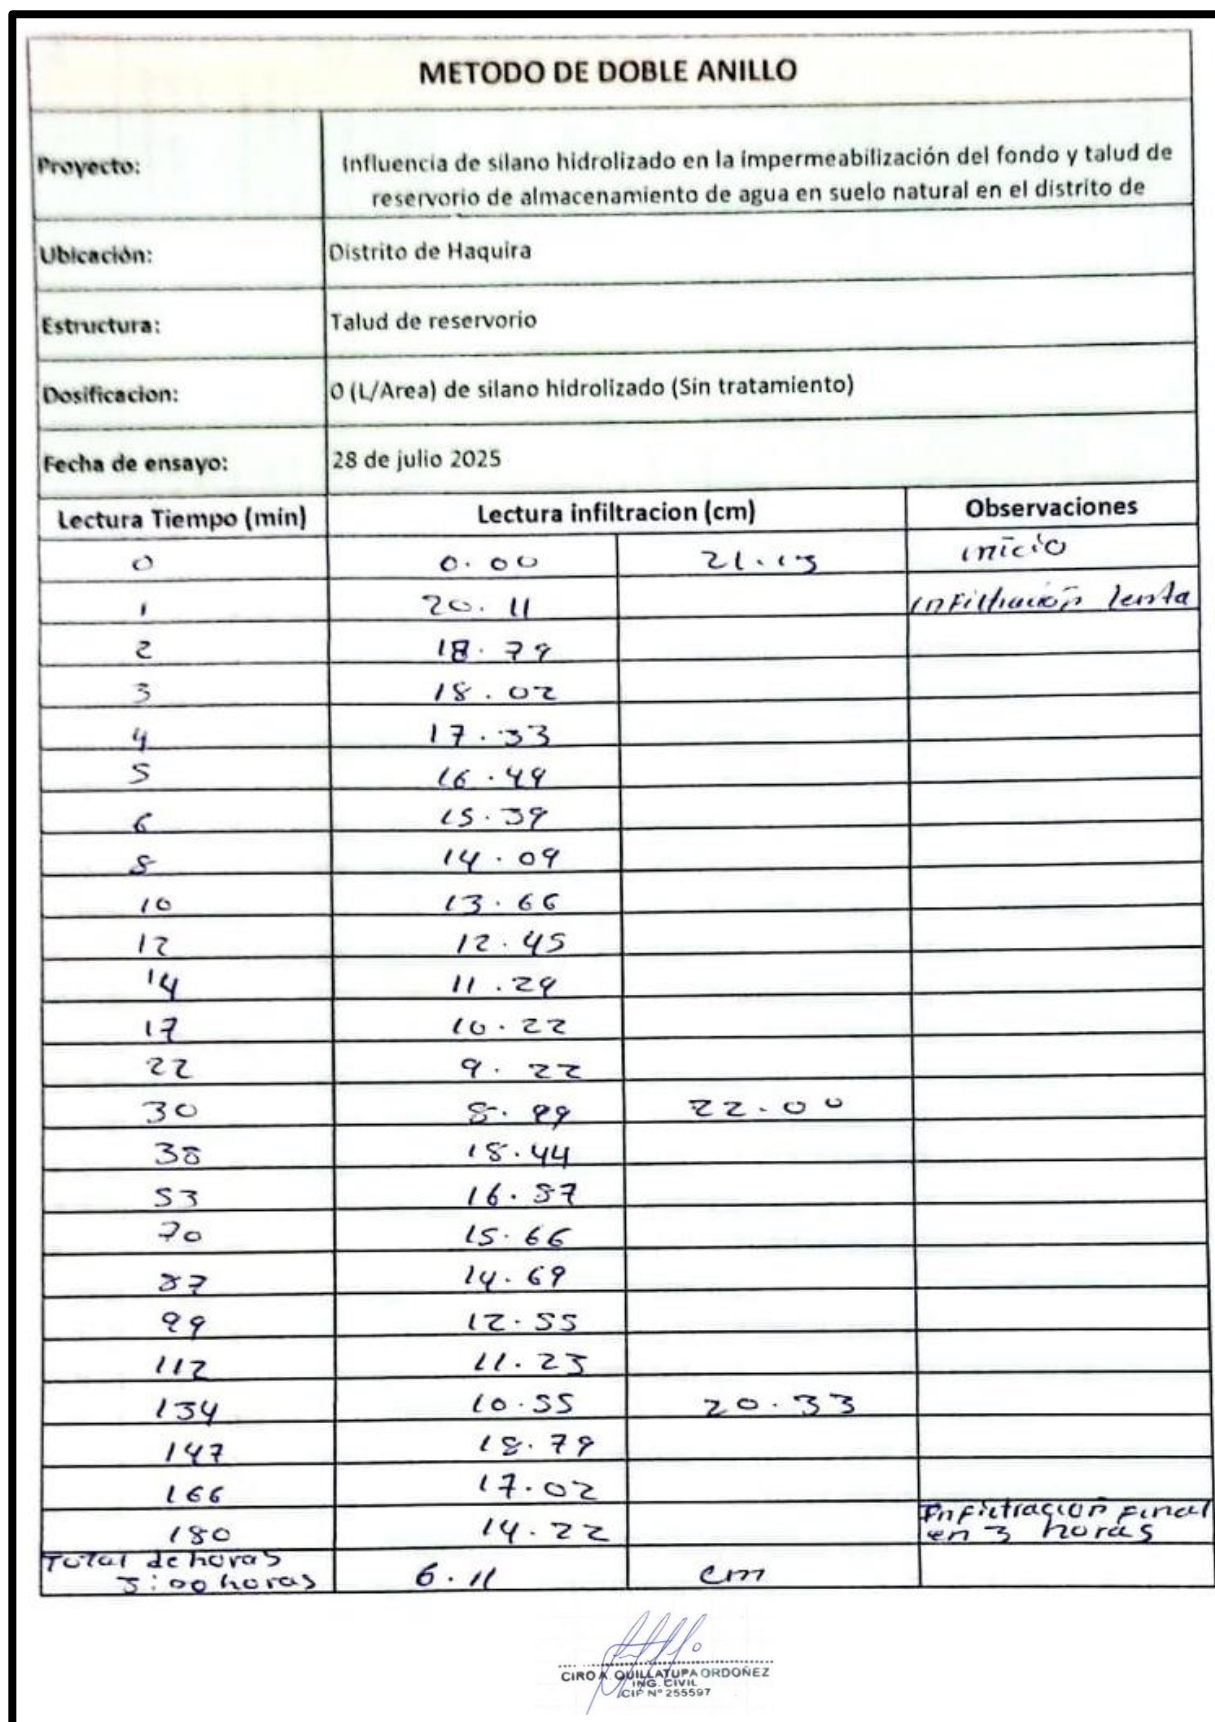 METODO DE DOBLE ANILLO
Proyecto: Influencia de silano hidrolizado en la impermeabilización del fondo y talud de
reservorio de almacenamiento de agua en suelo natural en el distrito de
Ubicación: Distrito de Haquira
Estructura: Talud de reservorio
Dosificacion: 0 (L/Area) de silano hidrolizado (Sin tratamiento)
Fecha de ensayo: 28 de julio 2025
Lectura Tiempo (min) Lectura infiltracion (cm) Observaciones
0 0.00 21.13 inicio
1 20.11 infiltración lenta
2 18.79
3 18.02
4 17.33
5 16.49
6 15.39
8 14.09
10 13.66
12 12.45
14 11.29
17 10.22
22 9.22
30 8.99 22.00
38 18.44
53 16.87
70 15.66
87 14.69
99 12.55
112 11.23
134 10.55 20.33
147 18.79
166 17.02
180 14.22 Infiltración Final
en 3 horas
Total de horas
3:00 horas 6.11 cm
CIRO A. QUILLATUPA ORDOÑEZ
ING. CIVIL
CIP N° 255597